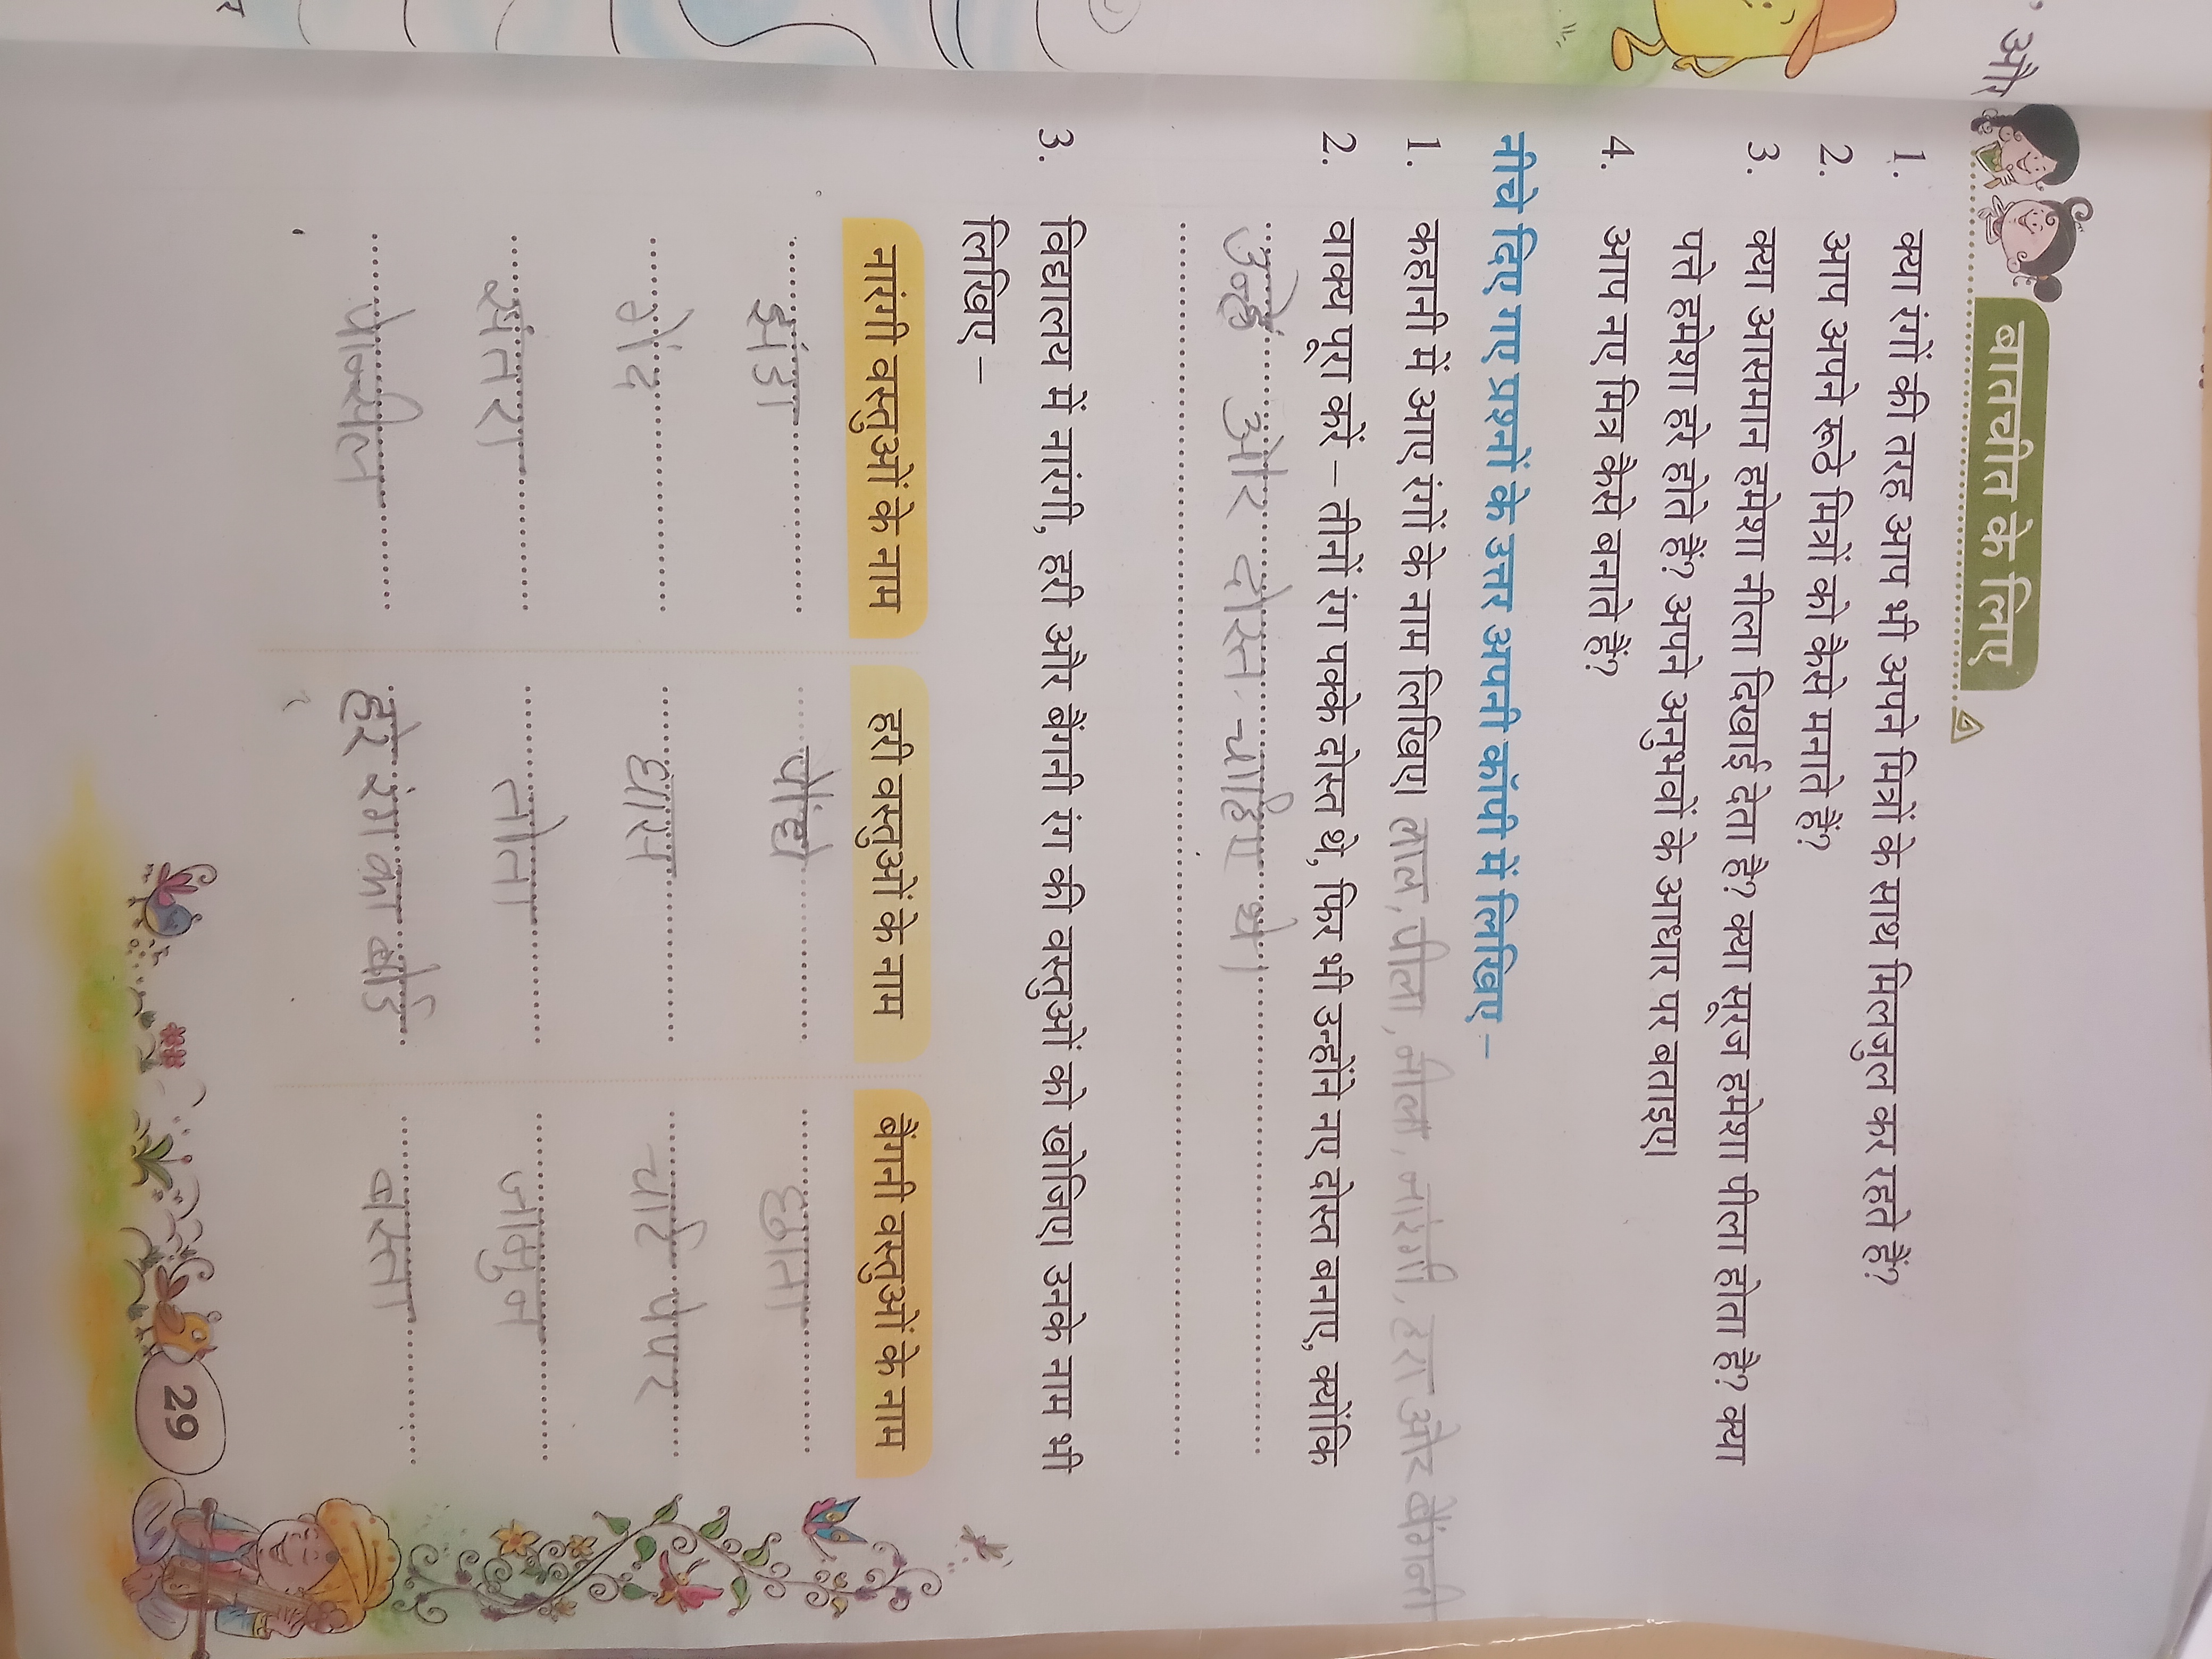 और
बातचीत के लिए
1. क्या रंगों की तरह आप भी अपने मित्रों के साथ मिलजुल कर रहते हैं?
2. आप अपने रूठे मित्रों को कैसे मनाते हैं?
3. क्या आसमान हमेशा नीला दिखाई देता है? क्या सूरज हमेशा पीला होता है? क्या
पत्ते हमेशा हरे होते हैं? अपने अनुभवों के आधार पर बताइए।
4. आप नए मित्र कैसे बनाते हैं?
नीचे दिए गए प्रश्नों के उत्तर अपनी कॉपी में लिखिए –
1. कहानी में आए रंगों के नाम लिखिए। लाल, पीला, नीला, नारंगी, हरा और बैंगनी
2. वाक्य पूरा करें – तीनों रंग पक्के दोस्त थे, फिर भी उन्होंने नए दोस्त बनाए, क्योंकि
उन्हें और दोस्त चाहिए थे।
3. विद्यालय में नारंगी, हरी और बैंगनी रंग की वस्तुओं को खोजिए। उनके नाम भी
लिखिए –
नारंगी वस्तुओं के नाम हरी वस्तुओं के नाम बैंगनी वस्तुओं के नाम
झंडा पौधे छाता
गेंद घास चार्ट पेपर
संतरा तोता जामुन
पेन्सील हरे रंग का बोर्ड बस्ता
29